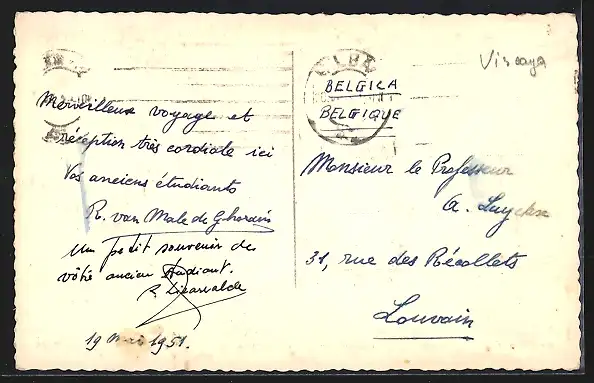 Merveilleux voyage et
réception très cordiale ici
Vos anciens étudiants
R. van Male de Ghorain
Un petit souvenir de
vôtre ancien étudiant.
19 Mai 1951.
Viscaya
BELGICA
BELGIQUE
Monsieur le Professeur
A.
31, rue des Récollets
Louvain